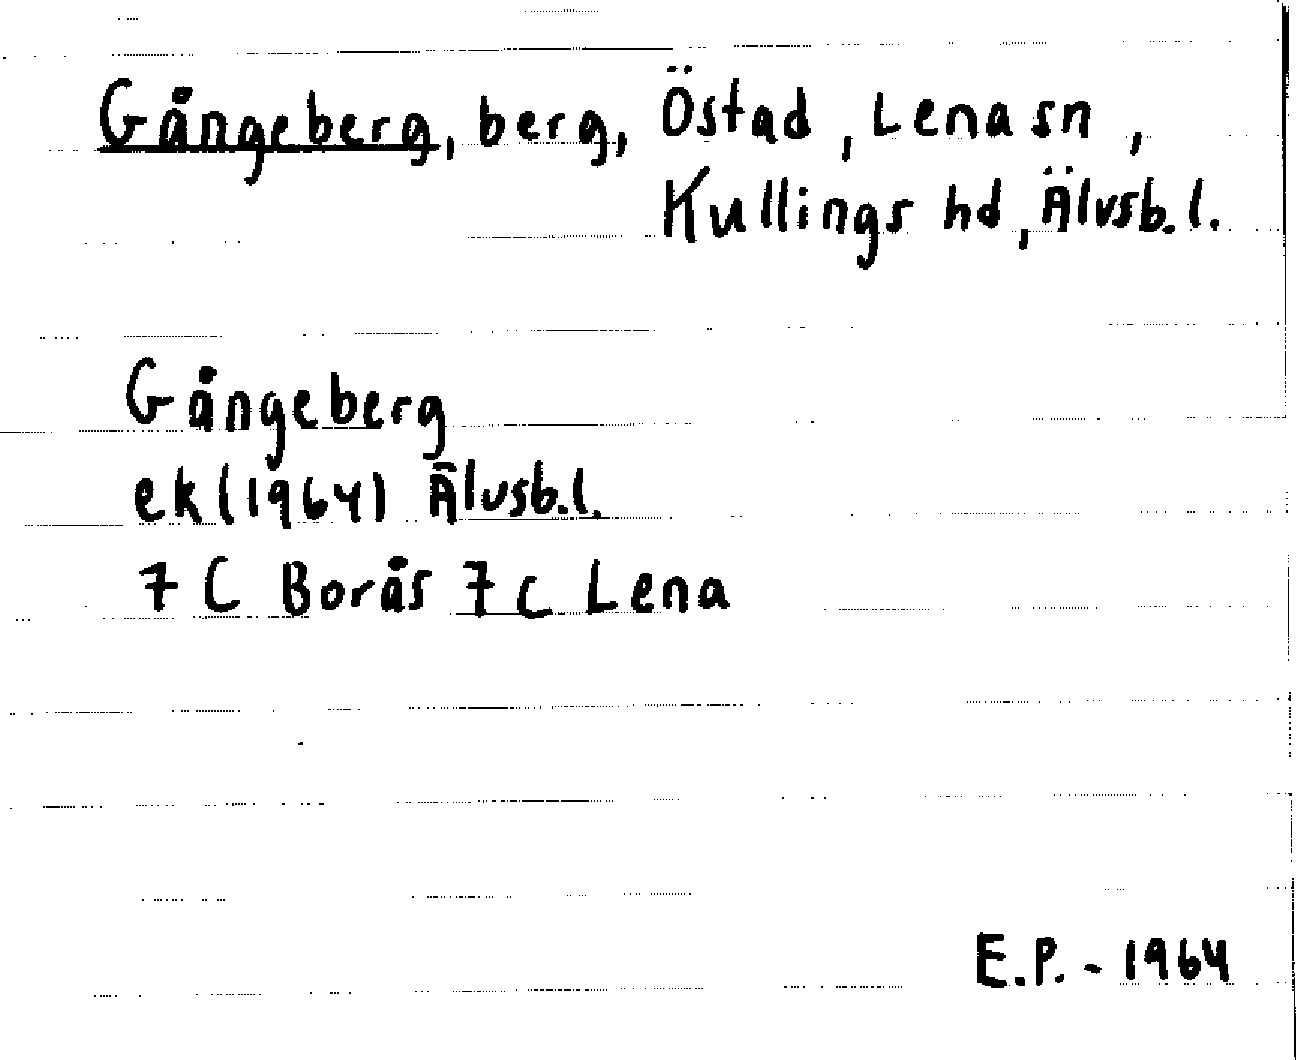 Gångeberg, berg, Östad, Lena sn,
Kullings hd, Älvsb. l.
Gångeberg
ek (1964) Älvsb. l.
7 C Borås 7 c Lena
E.P. - 1964